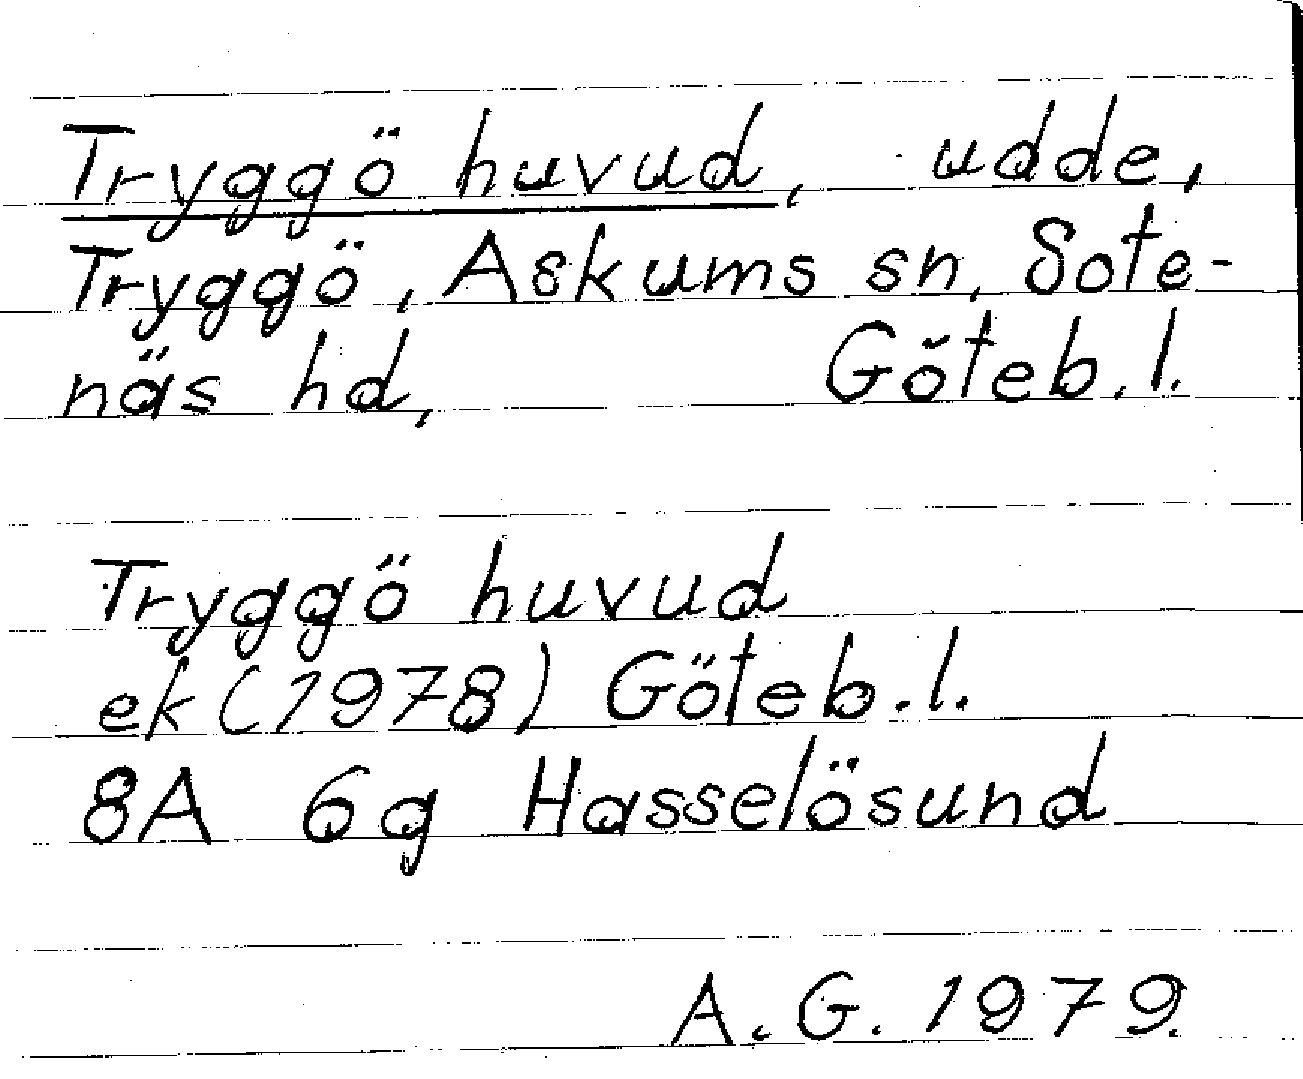 Tryggö huvud, udde,
Tryggö, Askums sn, Sote-
näs hd, Göteb.l.
Tryggö huvud
ek (1978) Göteb.l.
8A 6g Hasselösund
A.G. 1979.